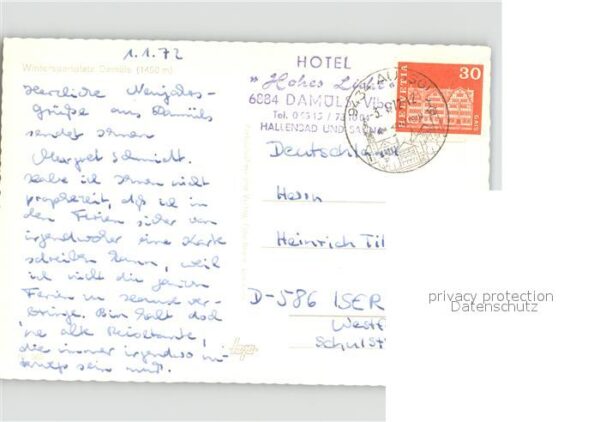 1.1.72
Wintersportplatz Damüls (1400 m)
Herzliche Neujahrs-
grüße aus Damüls
sendet Ihnen
Margret Schmidt.
Habe ich Ihnen nicht
prophezeit, daß ich in
den Ferien sicher von
irgendwoher eine Karte
schreiben kann, weil
ich nicht die ganzen
Ferien zu Hause ver-
bringe. Bin halt doch
'ne alte Reisetante,
die immer irgendwo un-
terwegs sein muß.
HOTEL
"Hohes Licht"
6884 DAMÜLS
Tel. 05510 /
HALLENBAD UND SAUNA
HELVETIA
30
Deutschland
Herrn
Heinrich Til
D-586 ISER
Westf
Schulst
privacy protection
Datenschutz